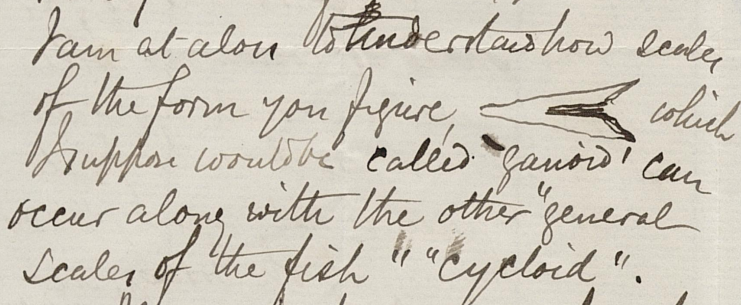 I am at a loss to understand how scales
of the form you figure, which
I suppose would be called 'ganoid' can
occur along with the other "general
scales of the fish" "cycloid".